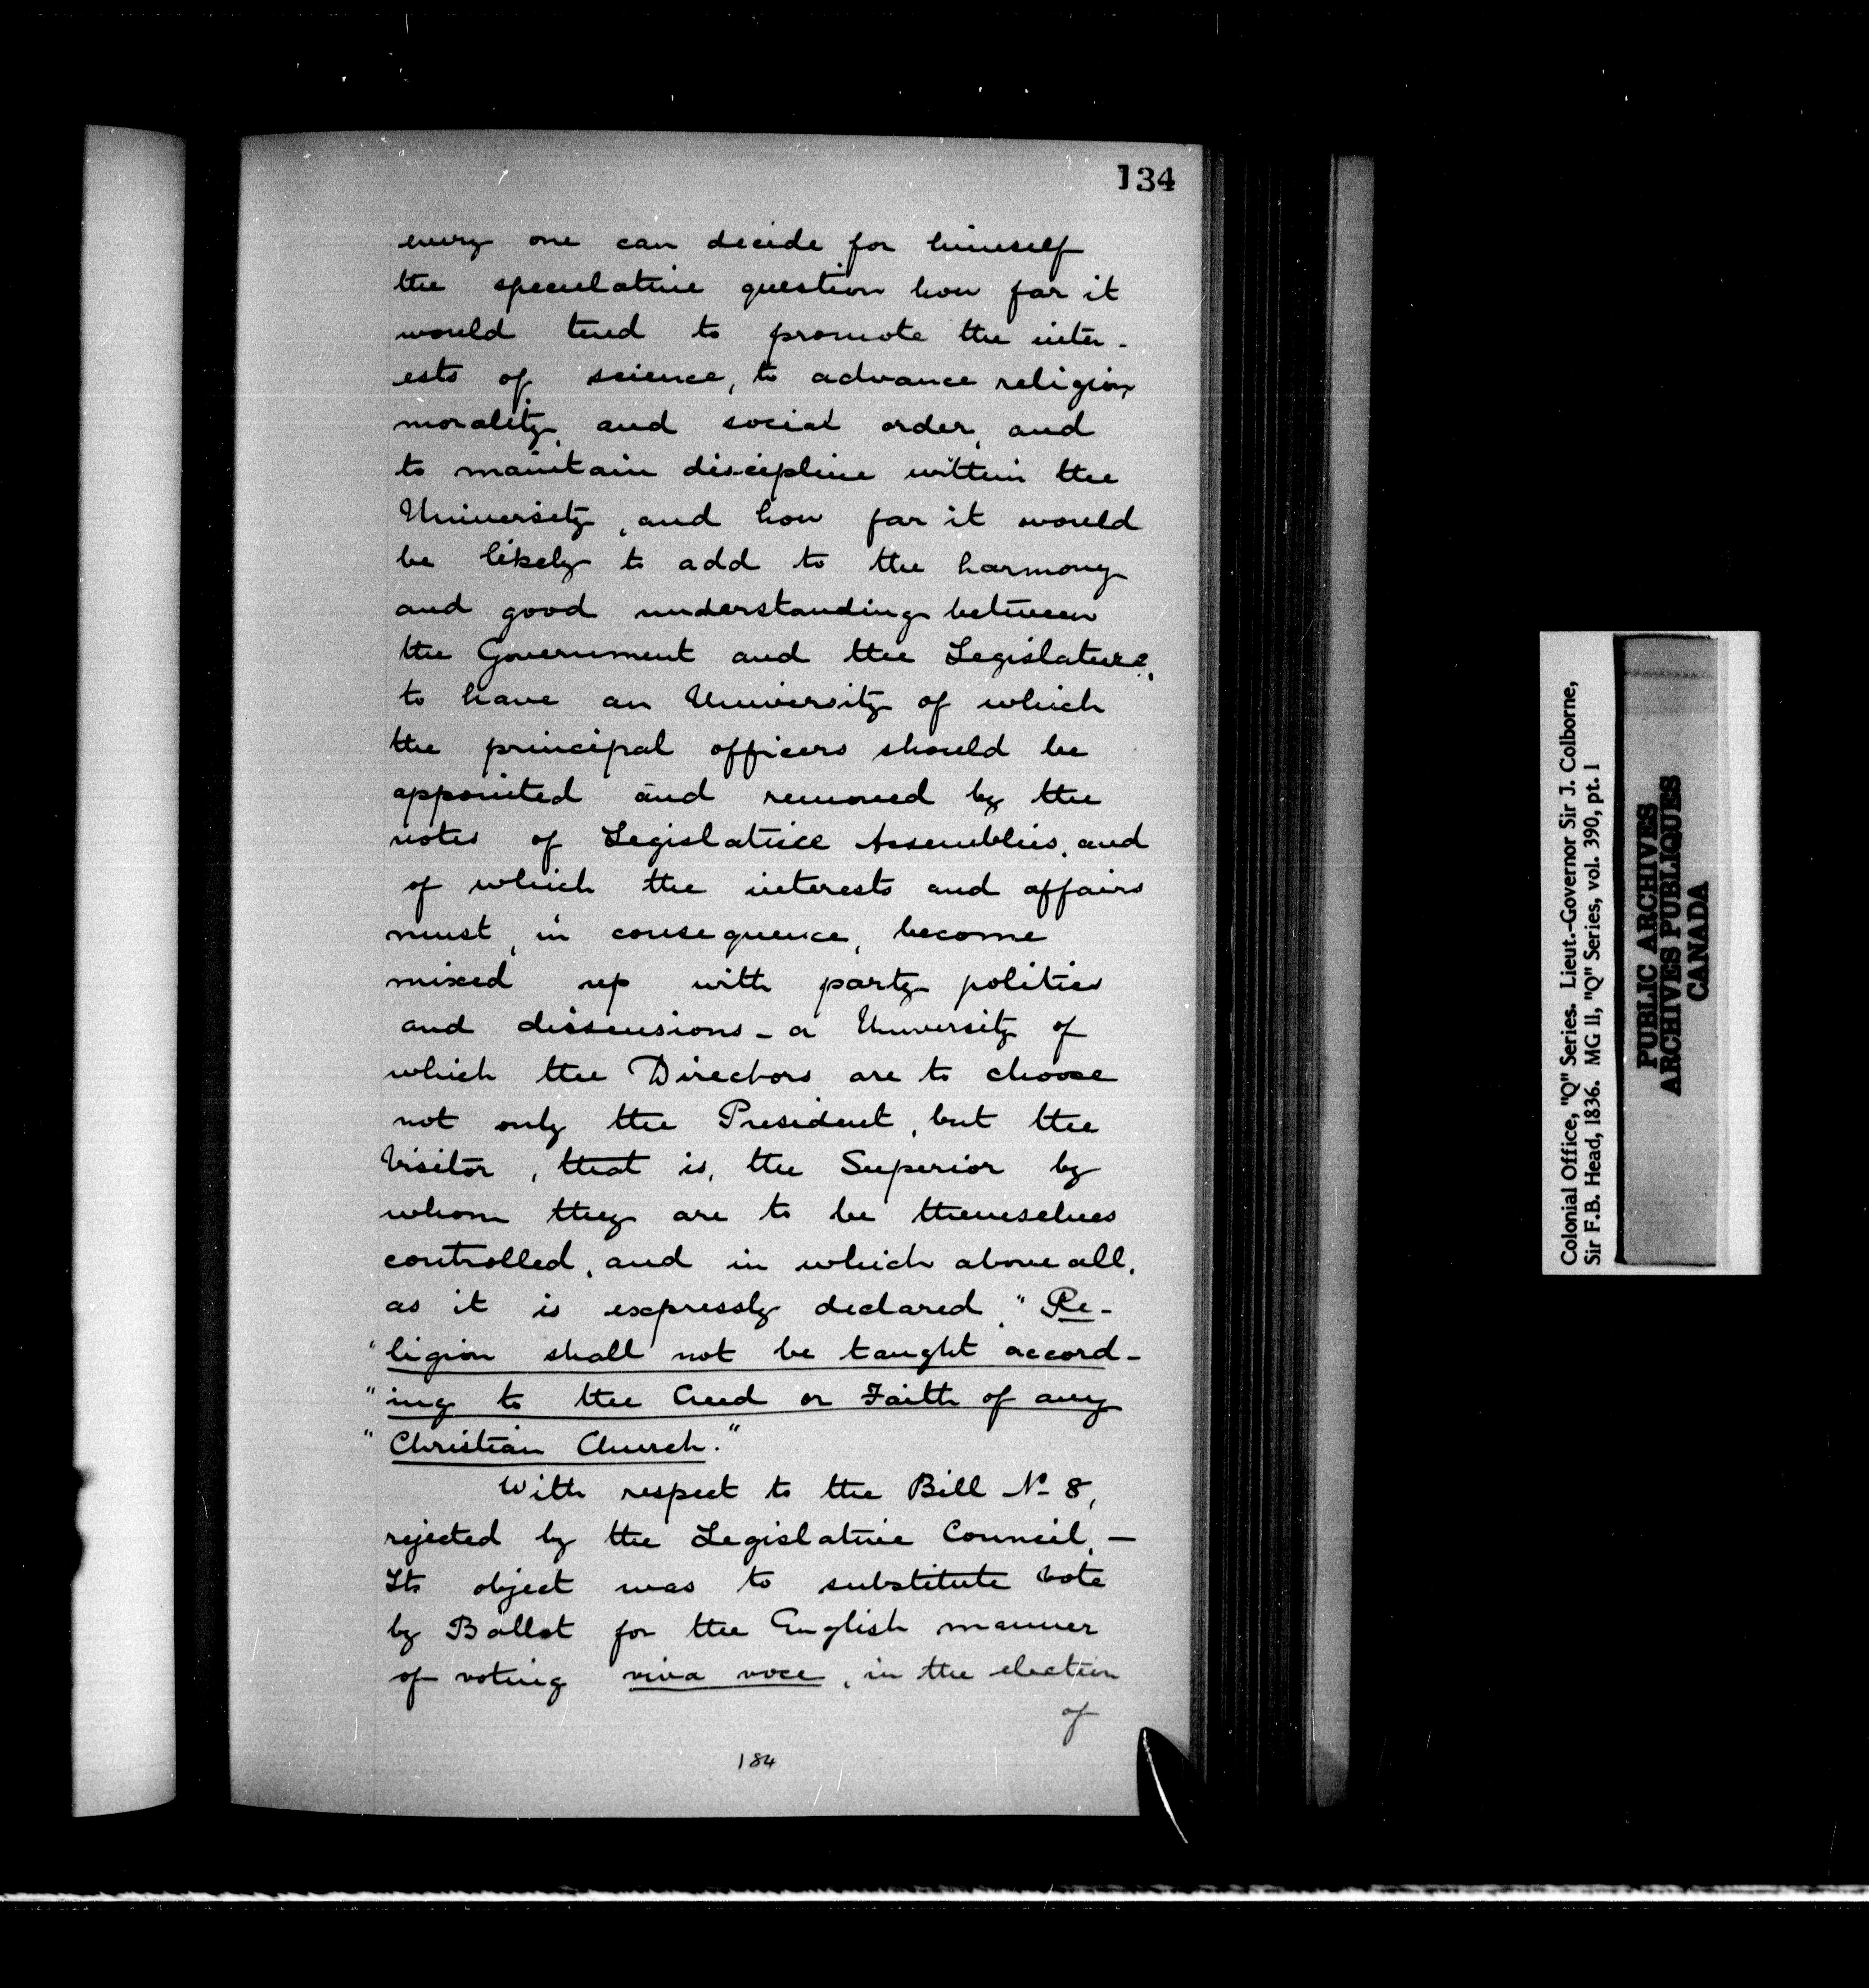 134
every one can decide for himself
the speculative question how far it
would tend to promote the inter-
ests of science, to advance religion,
morality, and social order, and
to maintain discipline within the
University, and how far it would
be likely to add to the harmony
and good understanding between
the Government and the Legislature,
to have an University of which
the principal officers should be
appointed and removed by the
votes of Legislative Assemblies, and
of which the interests and affairs
must, in consequence, become
mixed up with party politics
and dissensions - a University of
which the Directors are to choose
not only the President, but the
Visitor, that is, the Superior by
whom they are to be themselves
controlled, and in which above all,
as it is expressly declared, "Re-
"ligion shall not be taught accord-
"ing to the Creed or Faith of any
"Christian Church."
With respect to the Bill No 8,
rejected by the Legislative Council, —
Its object was to substitute vote
by Ballot for the English manner
of voting viva voce, in the election
of
184
Colonial Office, "Q" Series. Lieut.-Governor Sir J. Colborne,
Sir F.B. Head, 1836. MG 11, "Q" Series, vol. 390, pt. 1
PUBLIC ARCHIVES
ARCHIVES PUBLIQUES
CANADA